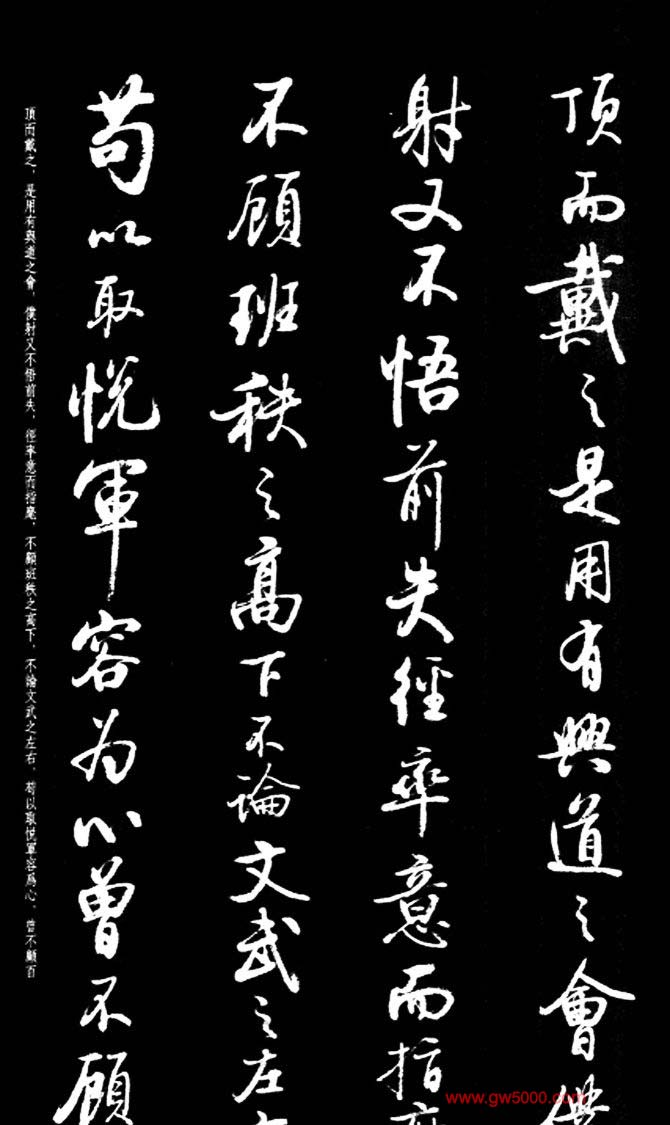 頂而戴之是用有興道之會僕
射又不悟前失徑率意而指麾
不顧班秩之高下不論文武之左右
苟以取悅軍容為心曾不顧
頂而戴之，是用有興道之會，僕射又不悟前失，徑率意而指麾，不顧班秩之高下，不論文武之左右，苟以取悅軍容爲心，曾不顧百
www.gw5000.com